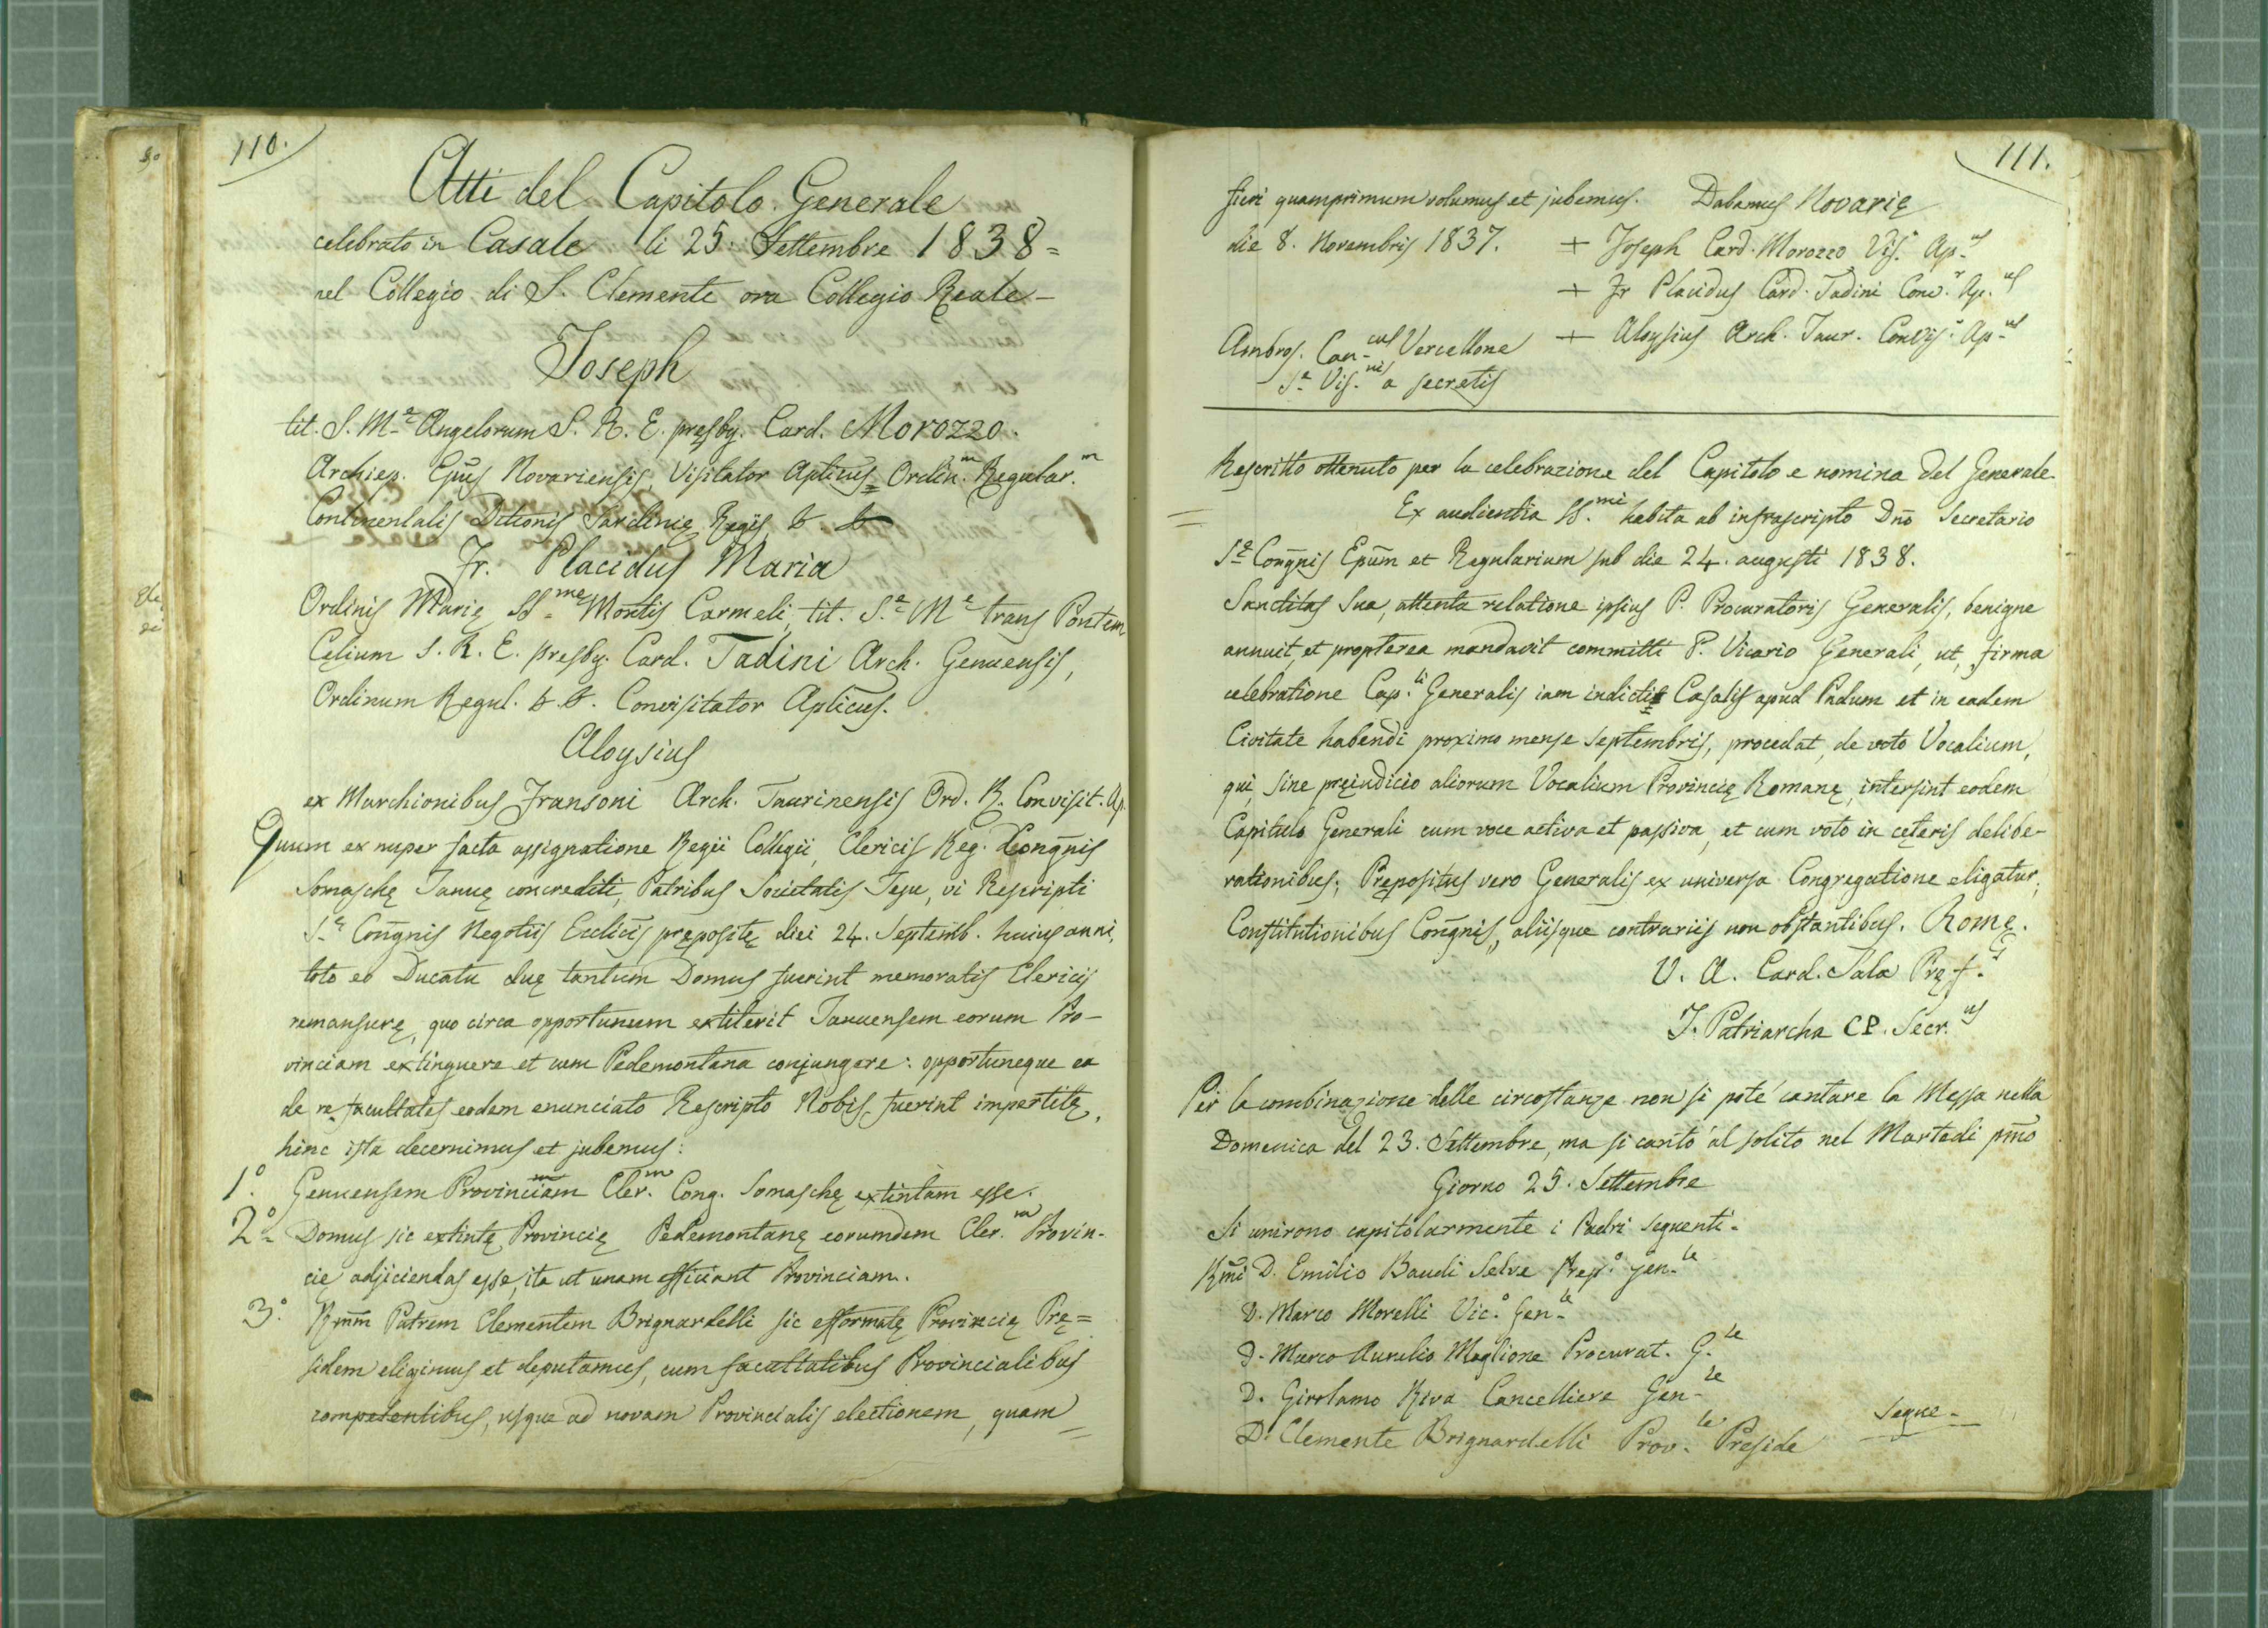 110.
Atti del Capitolo Generale
celebrato in Casale li 25. Settembre 1838 =
nel Collegio di S. Clemente ora Collegio Reale -
Joseph
tit. S. M.ę Angelorum S. R. E. pręsby. Card. Morozzo.
Archiep. Epũs Novariensis, Visitator Aplicus Ordin.m Regular.m
Continentalis Ditionis Sardinię Regis, & &
Fr. Placidus Maria
Ordinis Marię SS.mę Montis Carmeli, tit. S.ę M.ę trans Pontem
Cęlium S. R. E. presby. Card. Tadini Arch. Genuensis,
Ordinum Regul. & &. Convisitator Aplicus.
Aloysius
ex Marchionibus Fransoni Arch. Taurinensis Ord. R. Convisit. Ap.
Quum ex nuper facta assignatione Regii Collegii, Clericis Reg. Congñis
Somaschę Januę concrediti, Patribus Societatis Jesu, vi Rescripti
S.ę Congñis Negotiis Ecclicis pręposite diei 24. Septemb. huius anni,
toto eo Ducatu duę tantum Domus fuerint memoratis Clericis
remansurę, quo circa opportunum extiterit Januensem eorum Pro-
vinciam extinguere et cum Pedemontana conjungere: opportuneque ea
de re facultates eodem enunciato Rescripto Nobis fuerint impertitę,
hinc ista decernimus et jubemus:
1.° Genuensem Provinciam Cler.m Cong. Somaschę extintam esse.
2.° Domus sic extintę Provincię Pedemontanę eorumdem Cler.m Provin-
cię adjiciendas esse, ita ut unam efficiant Provinciam.
3.° Rmm̃ Patrem Clementem Brignardelli sic efformatę Provincię Prę=
sidem eligimus et deputamus, cum facultatibus Provincialibus
competentibus, usque ad novam Provincialis electionem, quam
111.
fieri quamprimum volumus et jubemus. Dabamus Novarię
die 8. Novembris 1837. + Joseph Card. Morozzo Vis.r Ap.us
+ Fr Placidus Card. Tadini Conv.r Ap.us
+ Aloysius Arch. Taur. Convis.r Ap.us
Ambros. Can.cus Vercellone
S.ę Vis.nis a secretis
Rescritto ottenuto per la celebrazione del Capitolo e nomina del Generale
Ex audientia SS.mi habita ab infrascripto Dnõ Secretario
S.ę Congñis Epũm et Regularium sub die 24. augusti 1838.
Sanctitas Sua, attenta relatione ipsius P. Procuratoris Generalis, benigne
annuit, et propterea mandavit committi P. Vicario Generali, ut, firma
celebratione Cap.li Generalis iam indicti Casalis apud Padum et in eadem
Civitate habendi proximo mense Septembris, procedat, de voto Vocalium,
qui, sine pręiudicio aliorum Vocalium Provincię Romanę, intersint eodem
Capitulo Generali cum voce activa et passiva, et cum voto in cęteris delibe-
rationibus; Prępositus vero Generalis ex universa Congregatione eligatur;
Constitutionibus Congñis, aliisque contrariis non obstantibus. Romę.
V. A. Card. Sala Pręf.s
J. Patriarcha CP. Secr.us
Per la combinazione delle circostanze non si poté cantare la Messa nella
Domenica del 23. Settembre, ma si cantò al solito nel Martedi pm̃o
Giorno 25. Settembre
Si unirono capitolarmente i Padri seguenti -
Rm̃i D. Emilio Baudi Selve Prep.° gen.le
D. Marco Morelli Vic.° Gen.le
D. Marco Aurelio Maglione Procurat. G.le
D. Girolamo Riva Cancelliere Gen.le
D. Clemente Brignardelli Prov.le Preside
Segue -